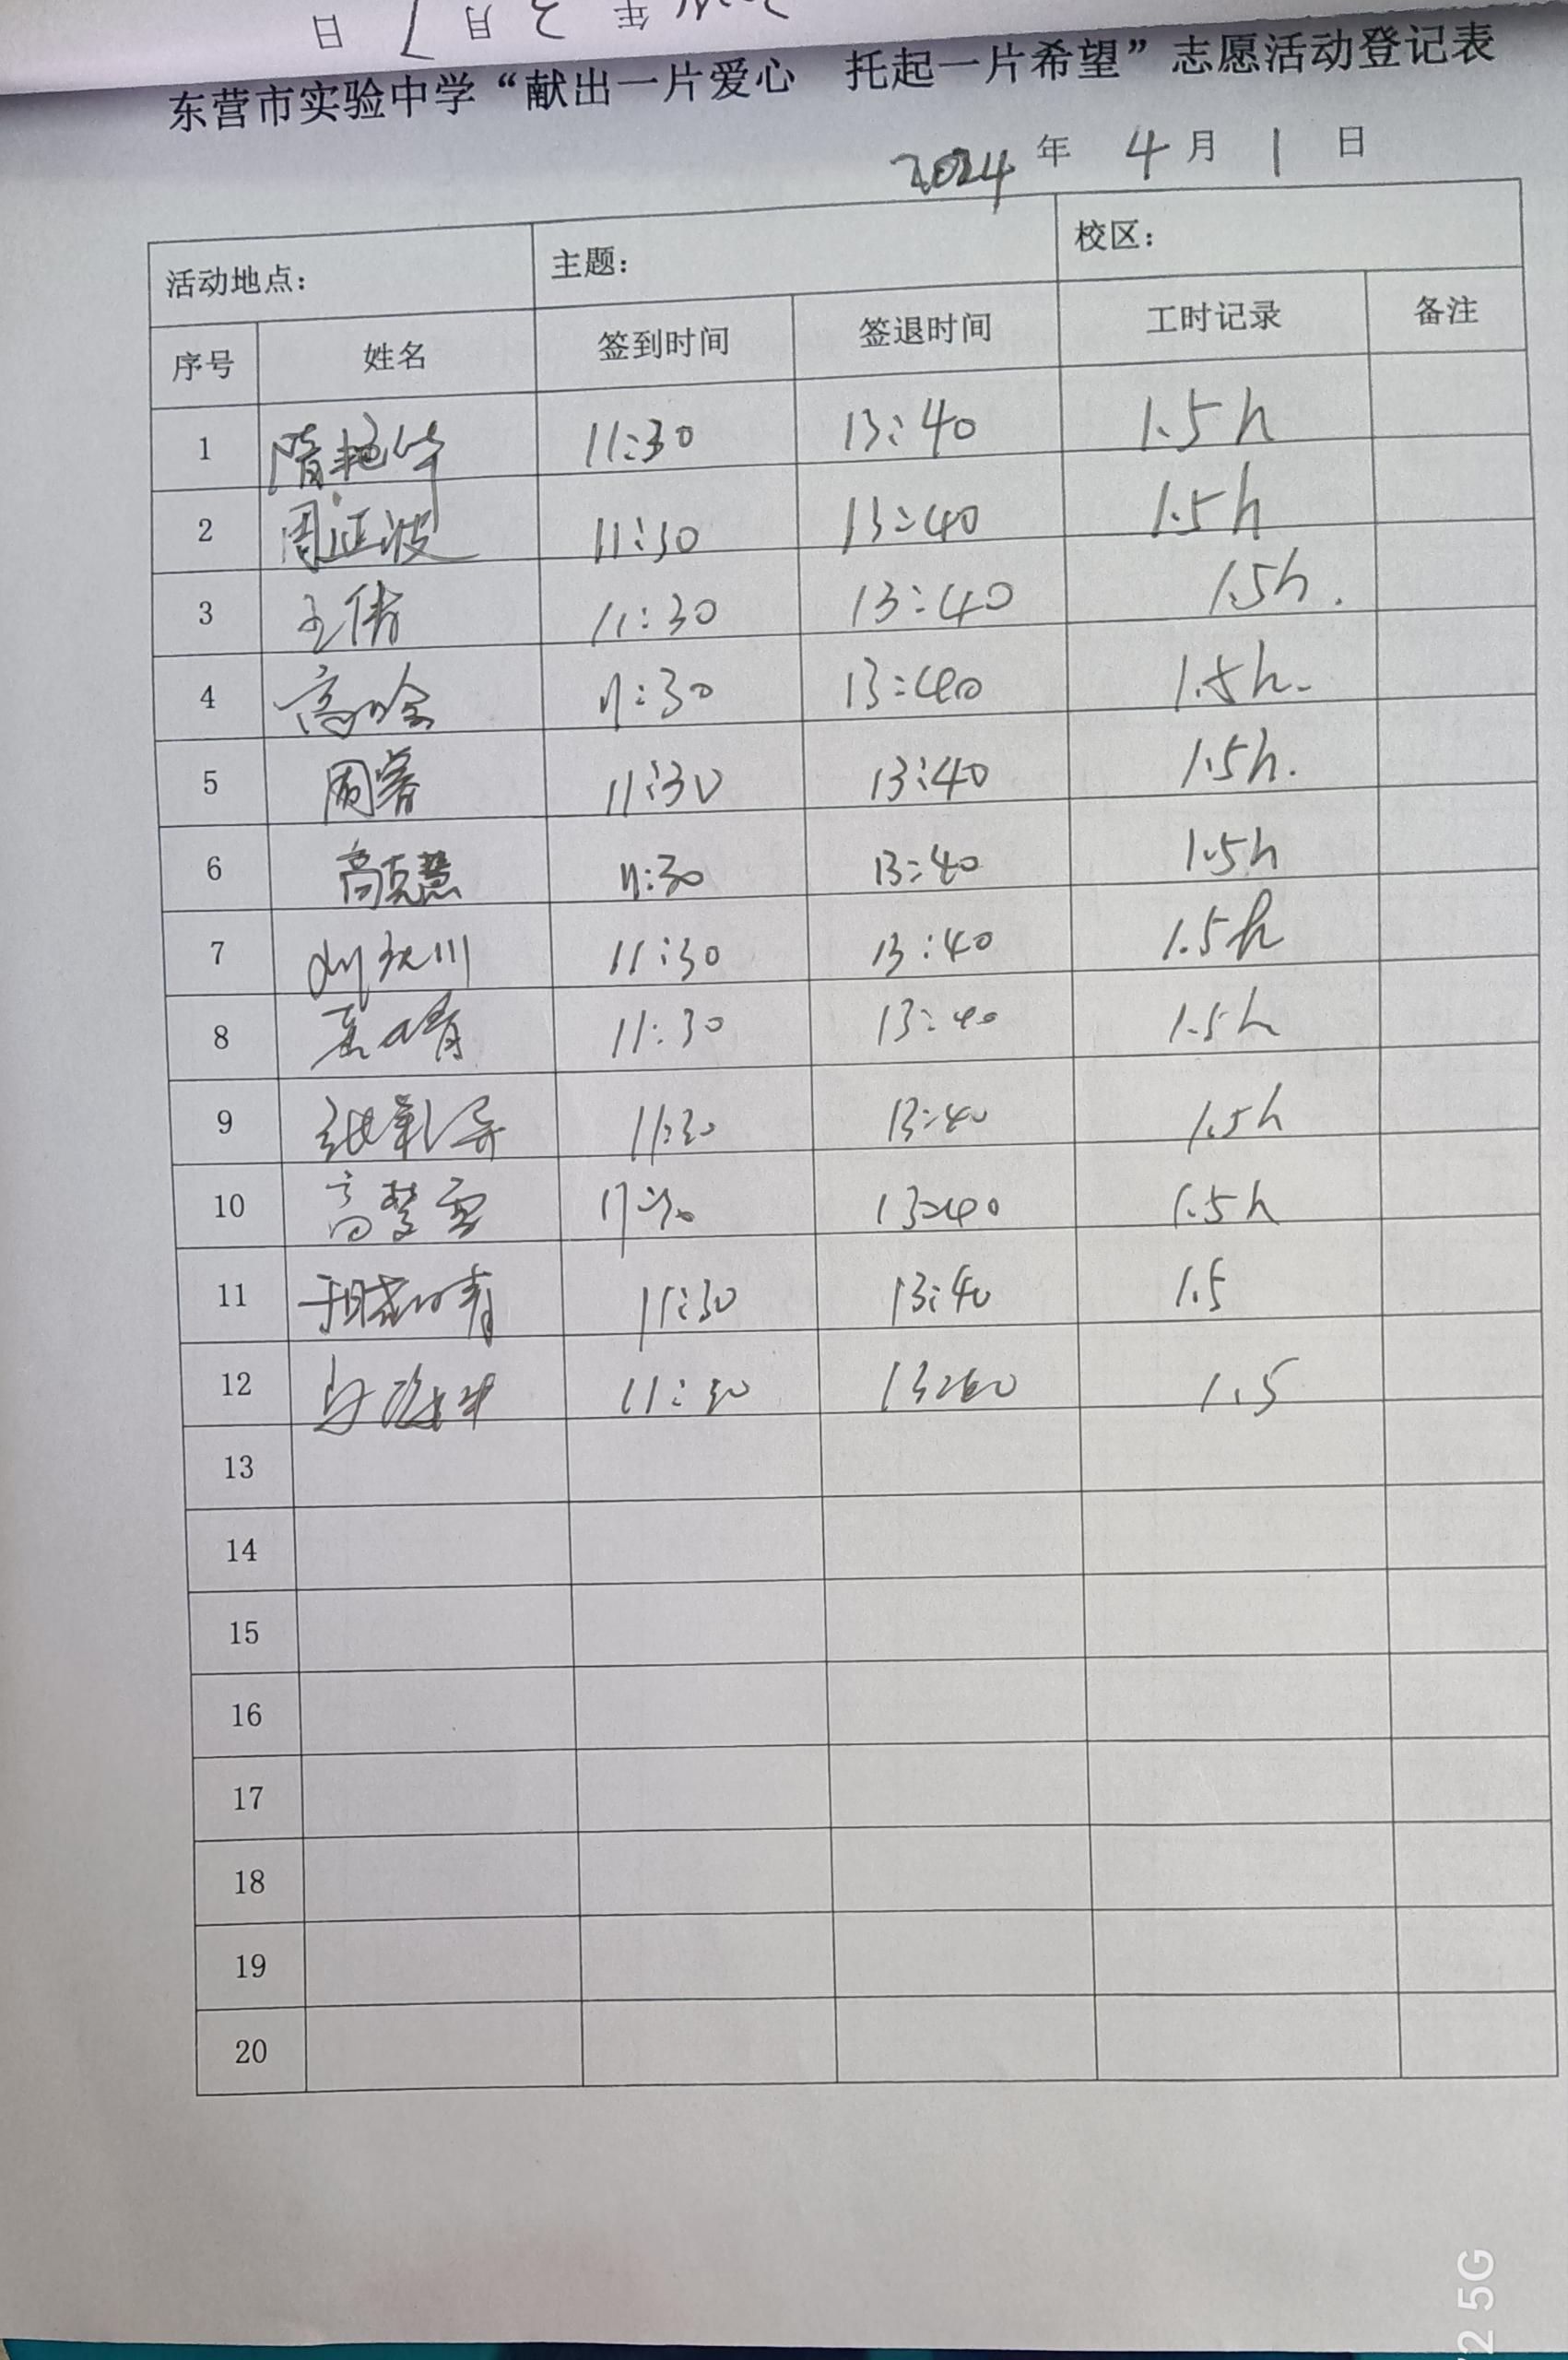 年 3 月 1 日
东营市实验中学“献出一片爱心 托起一片希望”志愿活动登记表
2024 年 4 月 1 日
活动地点： 主题： 校区：
序号 姓名 签到时间 签退时间 工时记录 备注
1 隋艳华 11:30 13:40 1.5h
2 周正波 11:30 13:40 1.5h
3 王倩 11:30 13:40 1.5h.
4 11:30 13:40 1.5h.
5 周蓉 11:30 13:40 1.5h.
6 高克慧 11:30 13:40 1.5h
7 11:30 13:40 1.5h
8 11:30 13:40 1.5h
9 11:30 13:40 1.5h
10 高梦雪 11:30 13:40 1.5h
11 11:30 13:40 1.5
12 11:30 13:40 1.5
13
14
15
16
17
18
19
20
2 5G